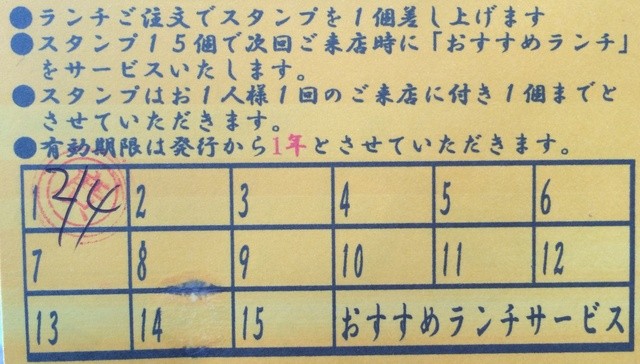 ●ランチご注文でスタンプを1個差し上げます
●スタンプ15個で次回ご来店時に「おすすめランチ」
をサービスいたします。
●スタンプはお1人様1回のご来店に付き1個までと
させていただきます。
●有効期限は発行から1年とさせていただきます。
1 2/4 2 3 4 5 6
7 8 9 10 11 12
13 14 15 おすすめランチサービス